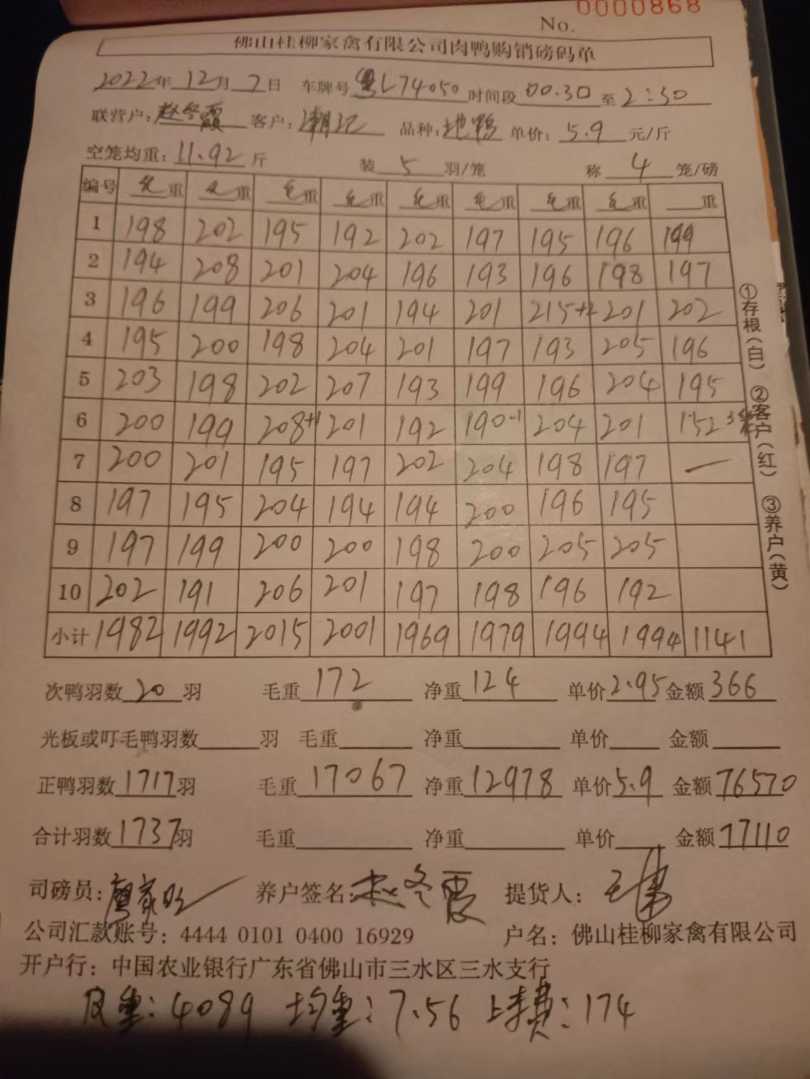 No. 0000868
佛山桂柳家禽有限公司肉鸭购销磅码单
2022年 12月 7日 车牌号 粤L74050 时间段 00.30 至 2:30
联营户: 赵冬霞 客户: 潮记 品种: 地鸭 单价: 5.9 元/斤
空笼均重: 11.92 斤 装 5 羽/笼 称 4 笼/磅
编号 毛重 毛重 毛重 毛重 毛重 毛重 毛重 毛重 重
1 198 202 195 192 202 197 195 196 199
2 194 208 201 204 196 193 196 198 197
3 196 199 206 201 194 201 215+2 201 202
4 195 200 198 204 201 197 193 205 196
5 203 198 202 207 193 199 196 204 195
6 200 199 208+1 201 192 190-1 204 201 152 3笼
7 200 201 195 197 202 204 198 197 —
8 197 195 204 194 194 200 196 195
9 197 199 200 200 198 200 205 205
10 202 191 206 201 197 198 196 192
小计 1982 1992 2015 2001 1969 1979 1994 1994 1141
①存根(白) ②客户(红) ③养户(黄)
次鸭羽数 20 羽 毛重 172 净重 124 单价 2.95 金额 366
光板或叮毛鸭羽数 羽 毛重 净重 单价 金额
正鸭羽数 1717 羽 毛重 17067 净重 12978 单价 5.9 金额 76570
合计羽数 1737 羽 毛重 净重 单价 金额 77110
司磅员: 养户签名: 赵冬霞 提货人:
公司汇款账号: 4444 0101 0400 16929 户名: 佛山桂柳家禽有限公司
开户行: 中国农业银行广东省佛山市三水区三水支行
皮重: 4089 均重: 7.56 上车费: 174